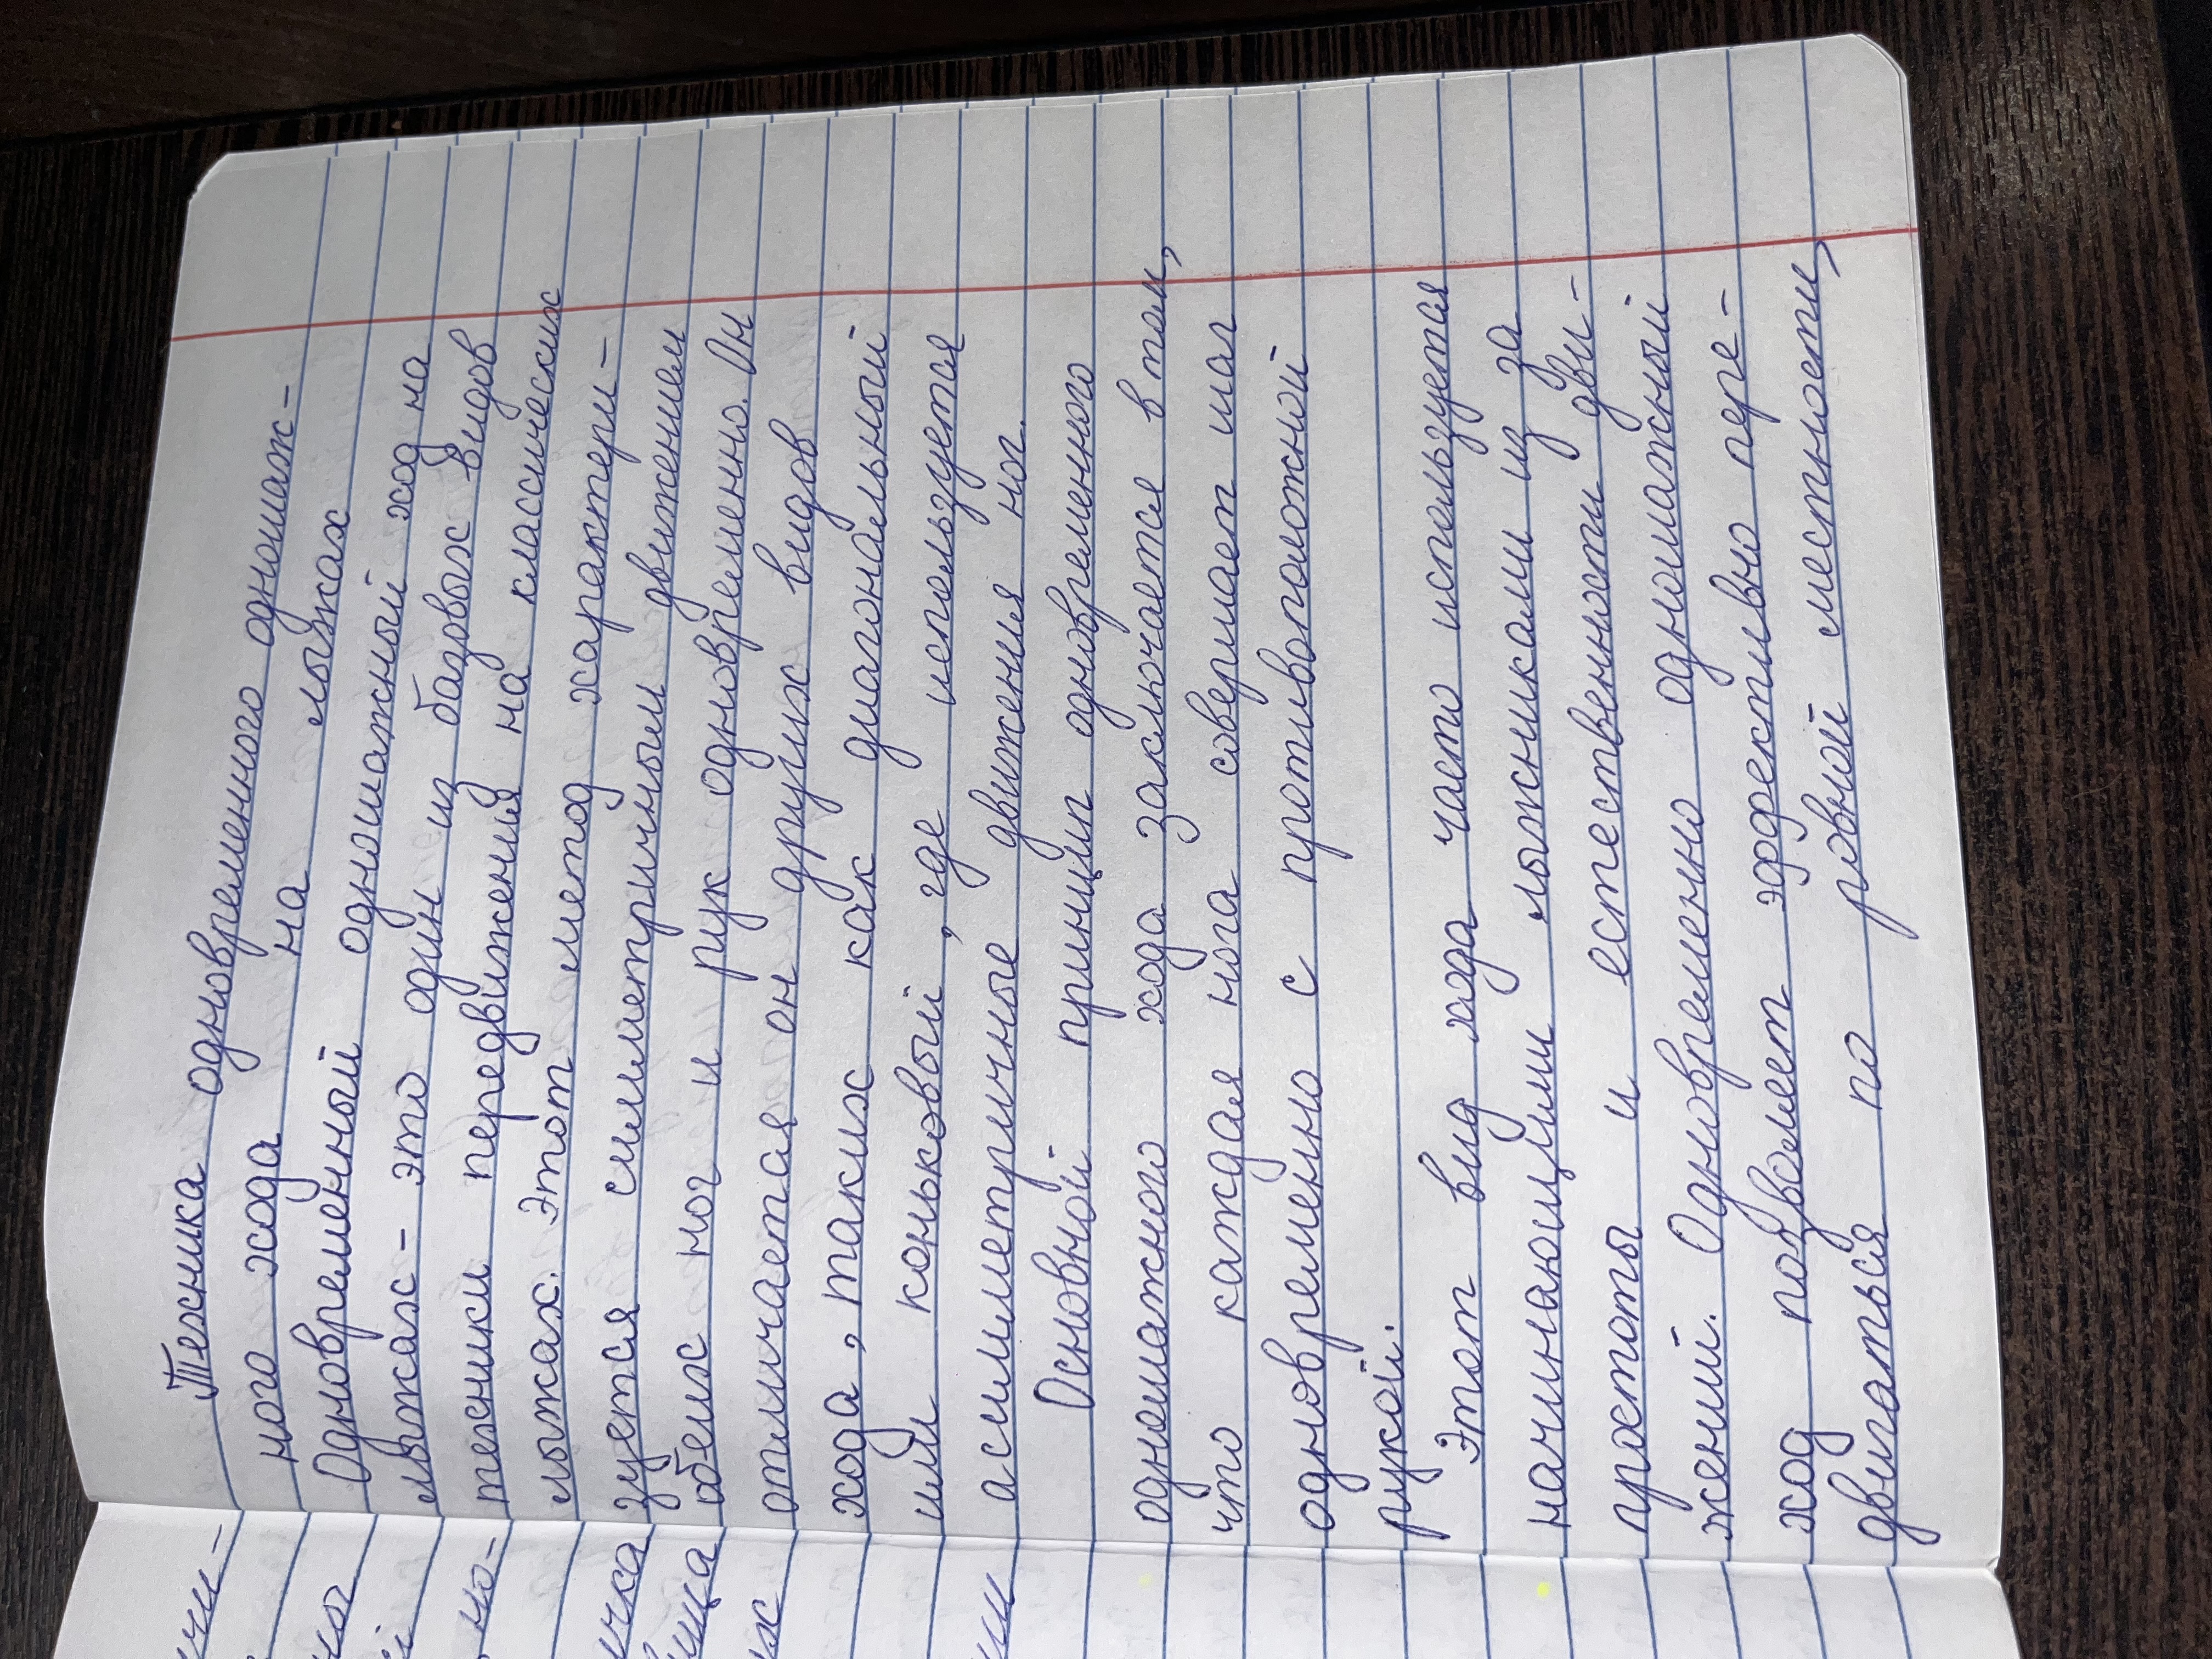 Техника одновременного одношаж-
ного хода на лыжах
Одновременный одношажный ход на
лыжах - это один из базовых видов
техники передвижения на классических
лыжах. Этот метод характери-
зуется симметричным движением
обеих ног и рук одновременно. Он
отличается он других видов
хода, таких как диагональный
или коньковый, где используется
асимметричные движения ног.
Основной принцип одновременного
одношажного хода заключается в том,
что каждая нога совершает шаг
одновременно с противоположной
рукой.
Этот вид хода часто используется
начинающими лыжниками из за
простоты и естественности дви-
жений. Одновременно одношажный
ход позволяет эффективно пере-
двигаться по ровной местности,